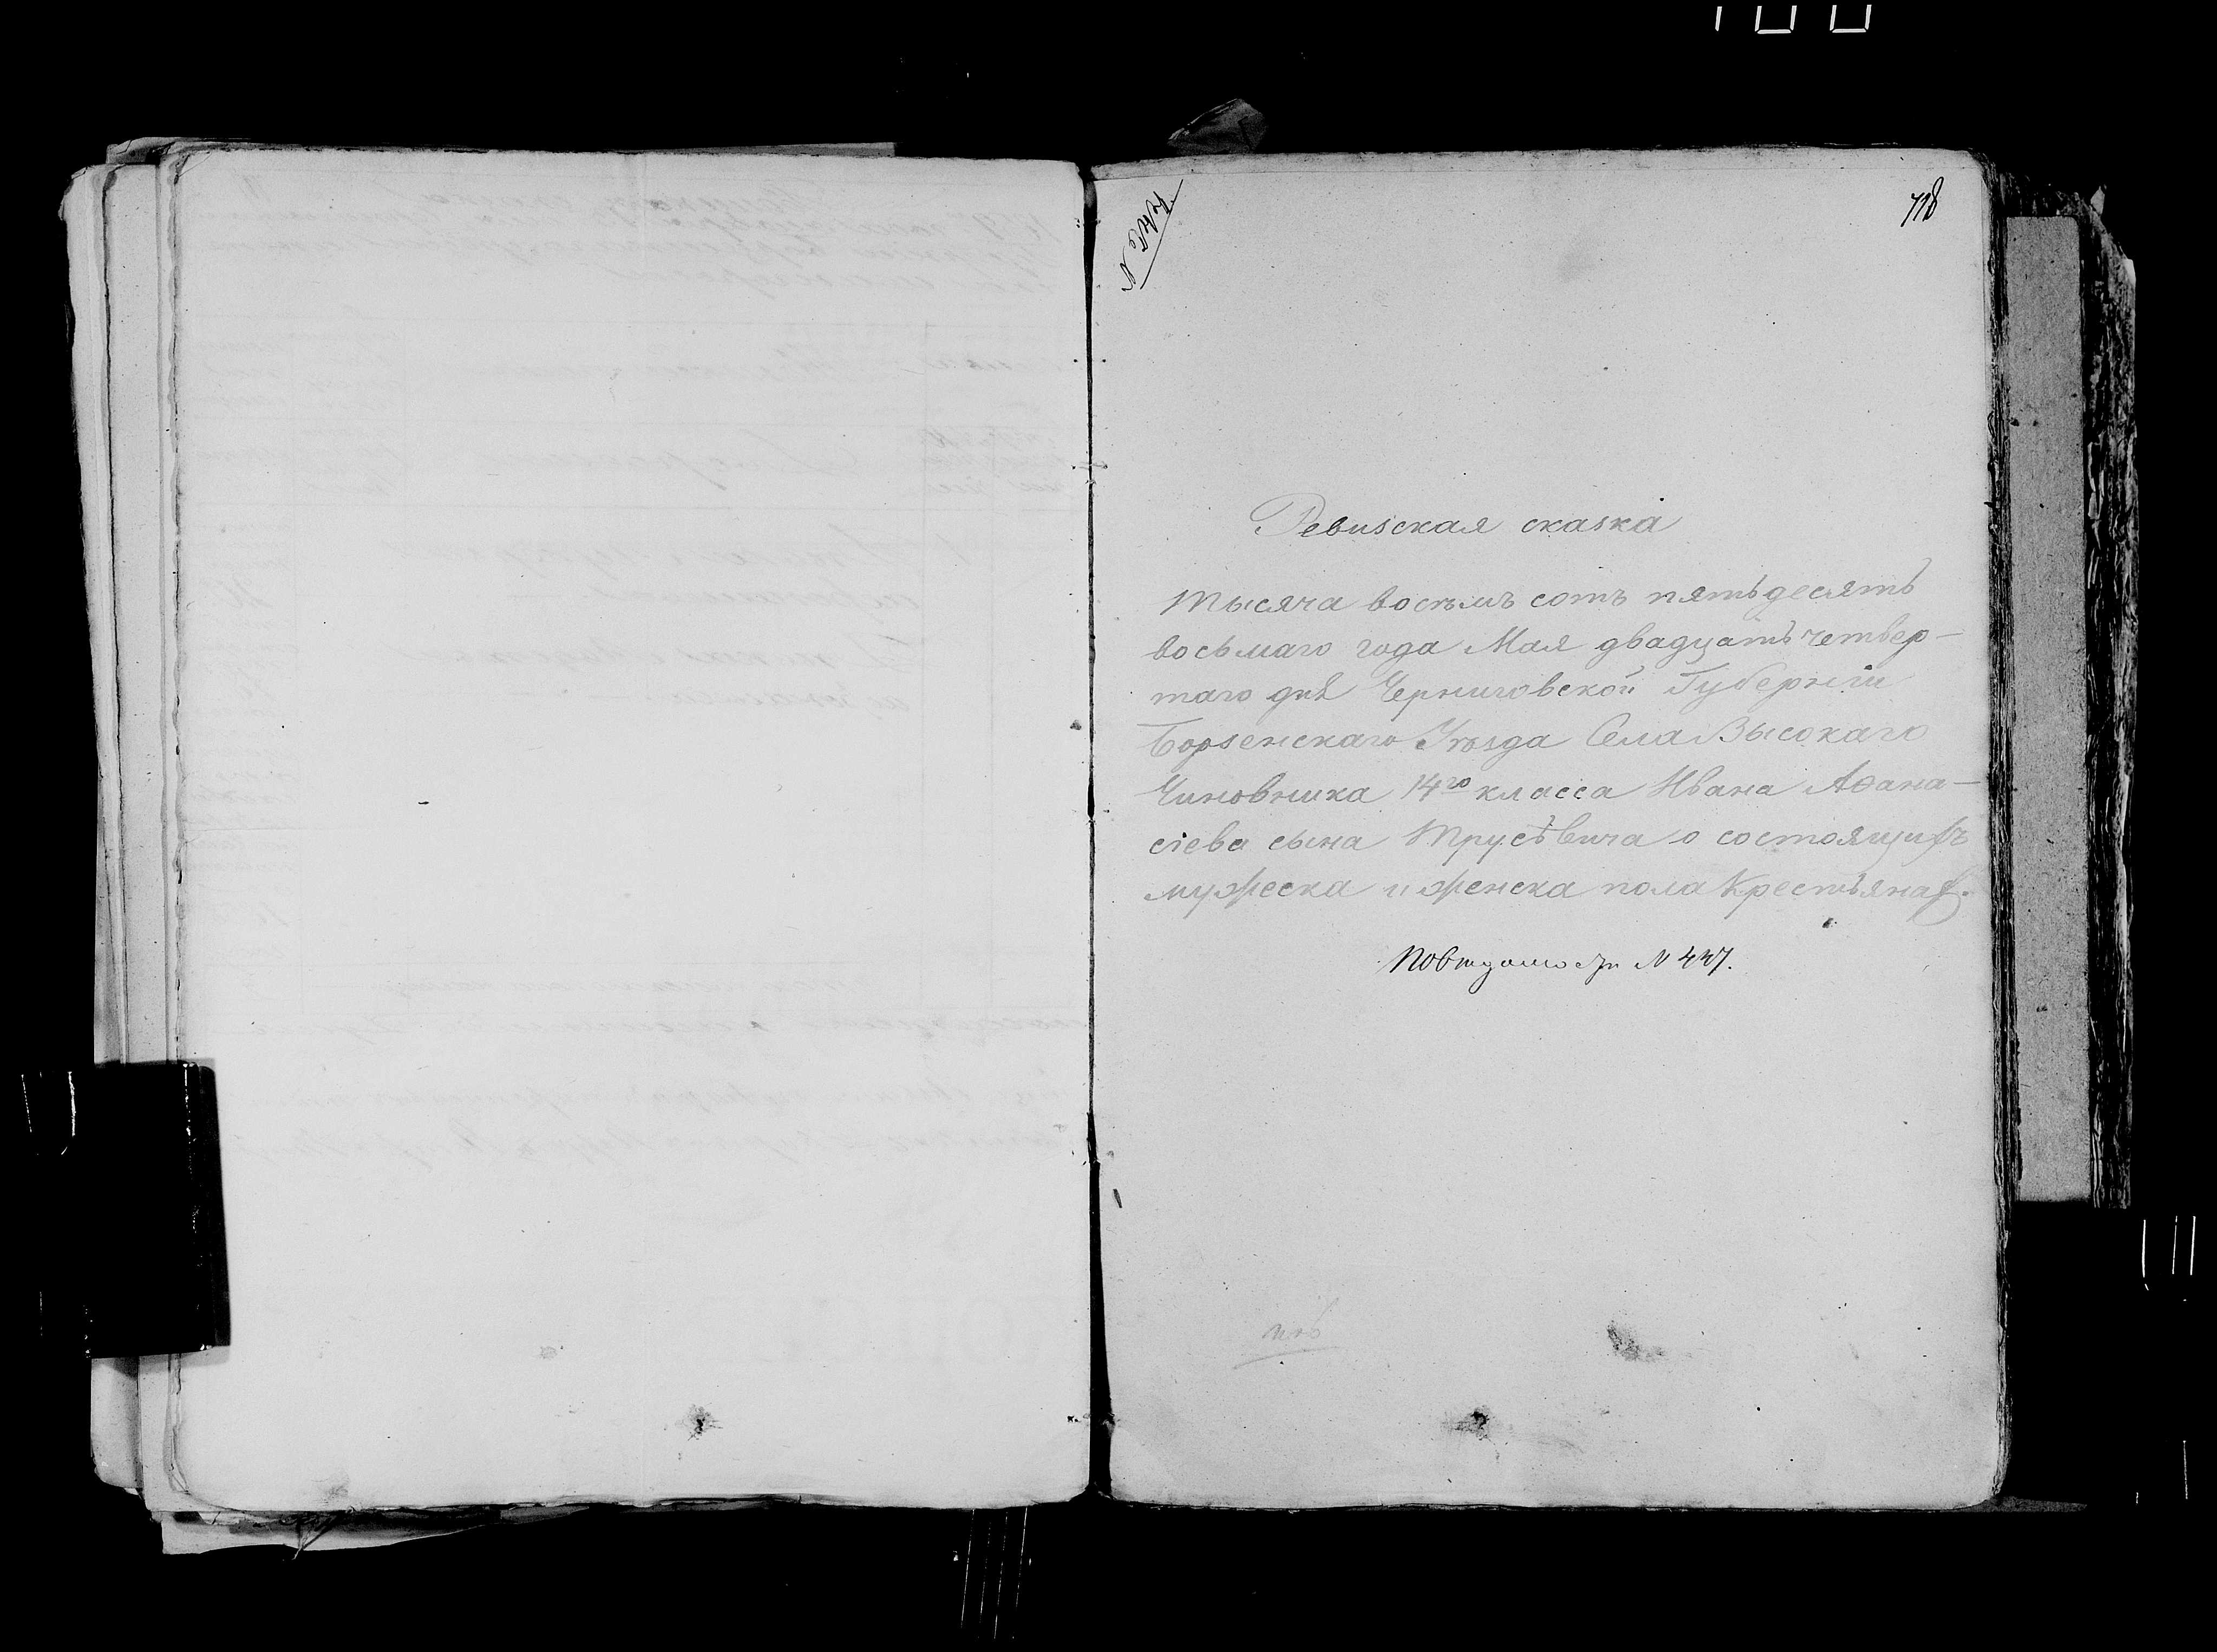 718
Ревизская сказка
Тысяча восемь сотъ пятьдесятъ
восьмаго года Мая двадцать четвер-
таго дня Черниговской Губерніи
Борзенскаго Уѣзда Села Высокаго
Чиновника 14го класса Ивана Афана-
сіева сына Трусѣвича о состоящихъ
мужеска и женска пола крестьянах.
По вѣдомости N 447.